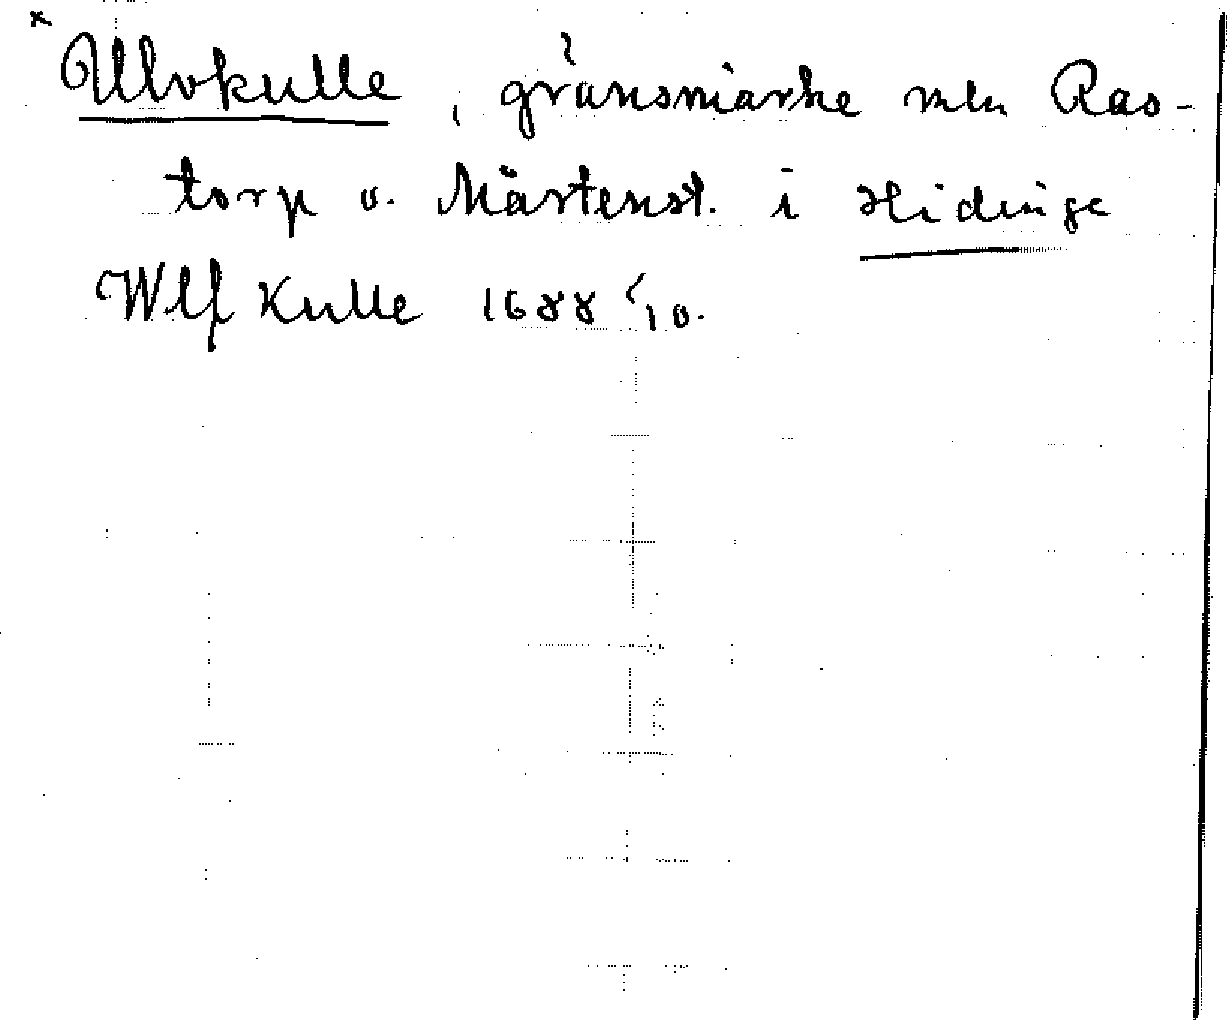 x Ulvkulle, gränsmärke mln Ras-
torp o. Mårtenst. i Hidinge
Wlf Kulle 1688 1/10.